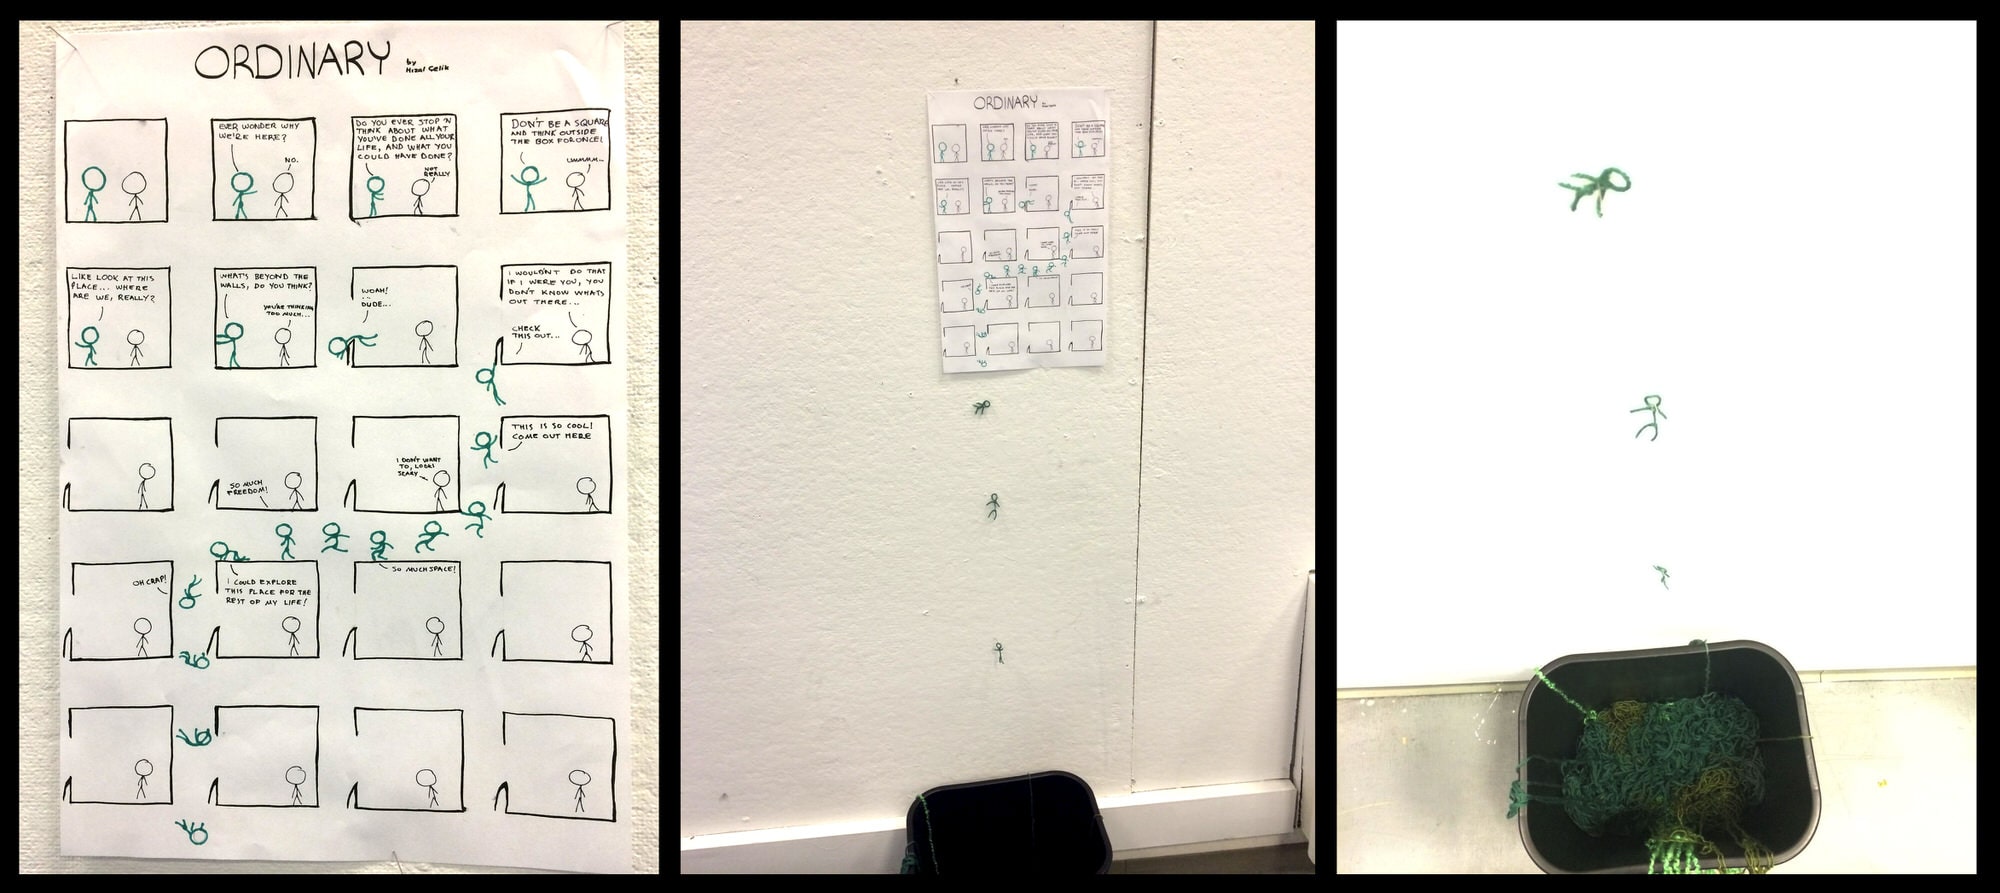 ORDINARY
by
Hizal Celik
EVER WONDER WHY
WE'RE HERE?
NO.
DO YOU EVER STOP 'N
THINK ABOUT WHAT
YOU'VE DONE ALL YOUR
LIFE, AND WHAT YOU
COULD HAVE DONE?
NOT
REALLY
DON'T BE A SQUARE
AND THINK OUTSIDE
THE BOX FOR ONCE!
UMMMM...
LIKE LOOK AT THIS
PLACE... WHERE
ARE WE, REALLY?
WHAT'S BEYOND THE
WALLS, DO YOU THINK?
YOU'RE THINKING
TOO MUCH...
WOAH!
...
DUDE...
I WOULDN'T DO THAT
IF I WERE YOU, YOU
DON'T KNOW WHATS
OUT THERE...
CHECK
THIS OUT...
SO MUCH
FREEDOM!
I DON'T WANT
TO, LOOKS
SCARY
THIS IS SO COOL!
COME OUT HERE
OH CRAP!
I COULD EXPLORE
THIS PLACE FOR THE
REST OF MY LIFE!
SO MUCH SPACE!
ORDINARY